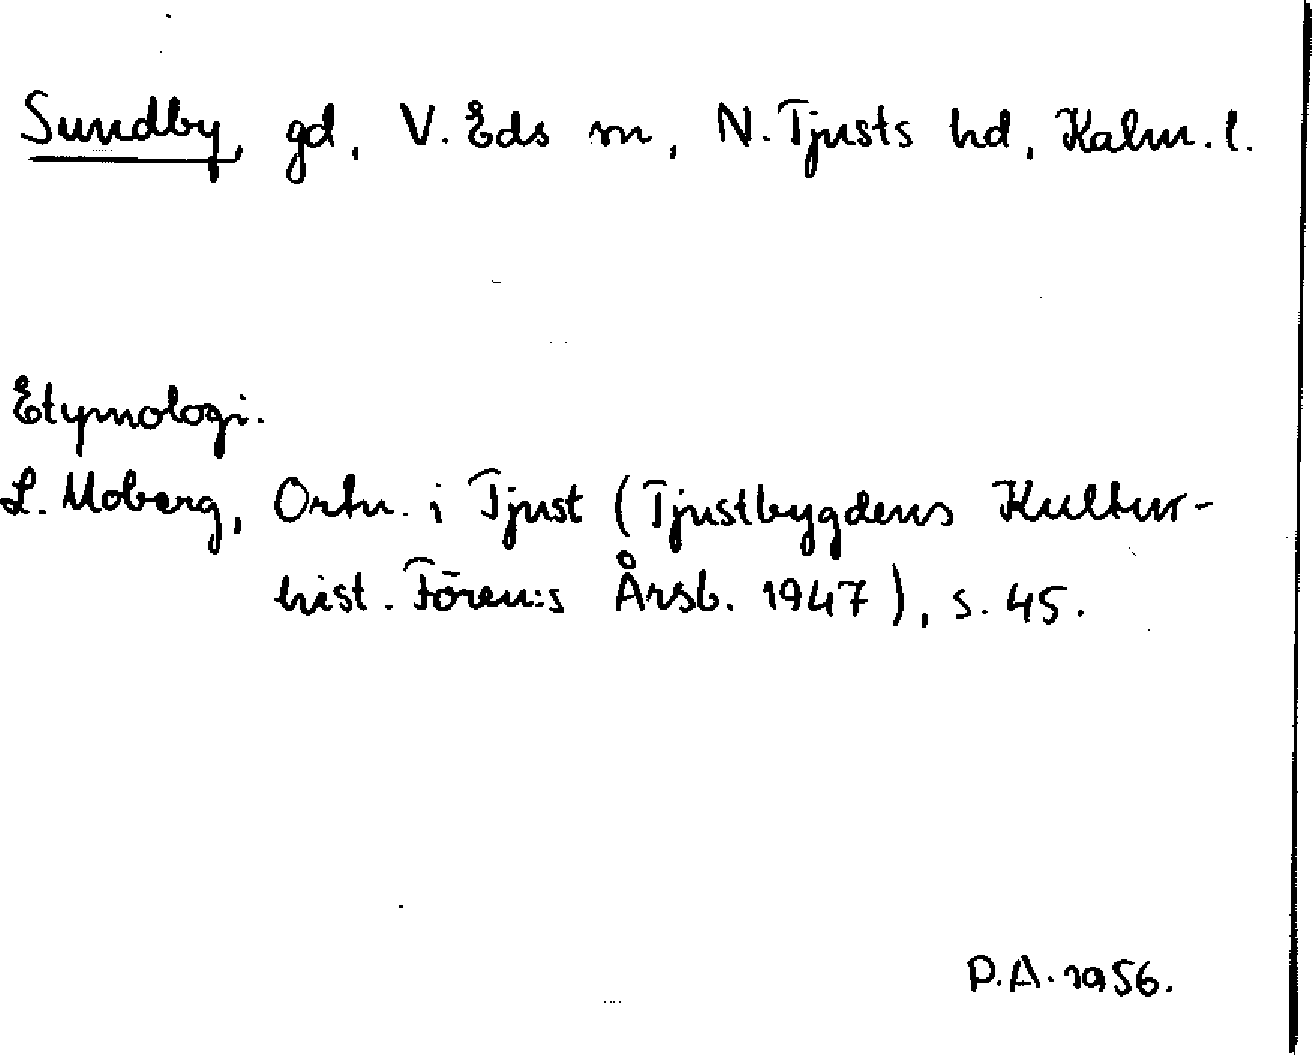 Sundby, gd, V. Eds sn, N. Tjusts hd, Kalm. l.
Etymologi.
L. Moberg, Ortn. i Tjust (Tjustbygdens Kultur-
hist. Fören:s Årsb. 1947), s. 45.
P.A. 1956.